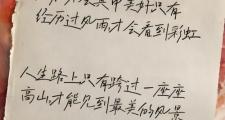 其中美好只有
经历过风雨才会看到彩虹
人生路上只有跨过一座座
高山才能见到最美的风景